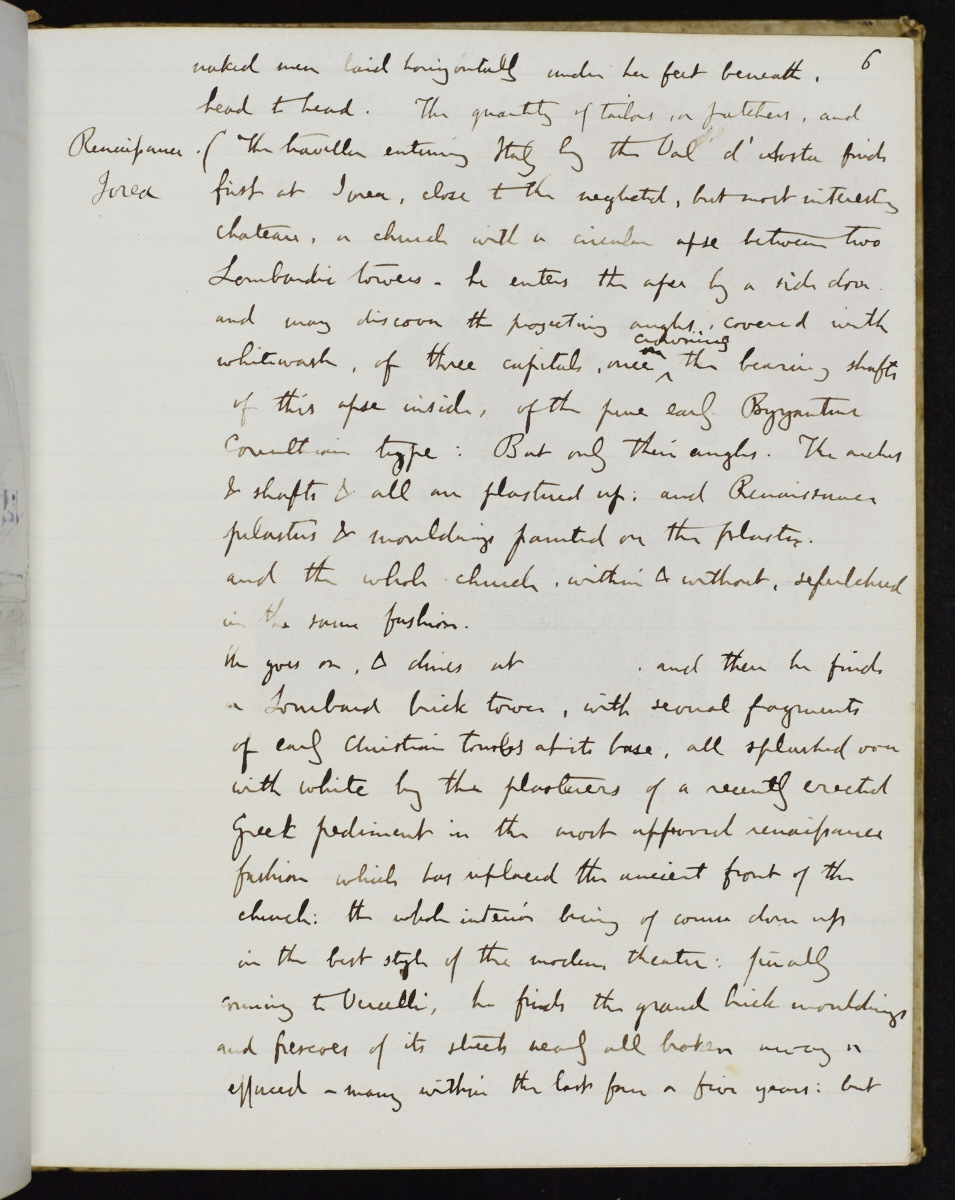 6
naked men laid horizontally under her feet beneath.
head to head. The quantity of tailors, or patchers, and
Renaissance. ( The traveller entering Italy by the Val d'Aosta finds
Ivrea first at Ivrea, close to the neglected, but most interesting
chateau, a church with a circular apse between two
Lombardic towers - he enters the apse by a side door.
and may discover the projecting angles, covered with
whitewash, of three capitals, once crowning the bearing shafts
of this apse inside, of the pure early Byzantine
Corinthian type: But only their angles. The arches
& shafts & all are plastered up: and Renaissance
pilasters & mouldings painted on the plaster.
and the whole church, within & without, sepulchred
in the same fashion.
He goes on, & dines at . and there he finds
a Lombard brick tower, with several fragments
of early Christian tombs at its base, all splashed over
with white by the plasterers of a recently erected
Greek pediment in the most approved renaissance
fashion which has replaced the ancient front of the
church: the whole interior being of course done up
in the best style of the modern theatre: finally
coming to Vercelli, he finds the grand brick mouldings
and frescoes of its streets nearly all broken away or
effaced - many within the last four or five years: but